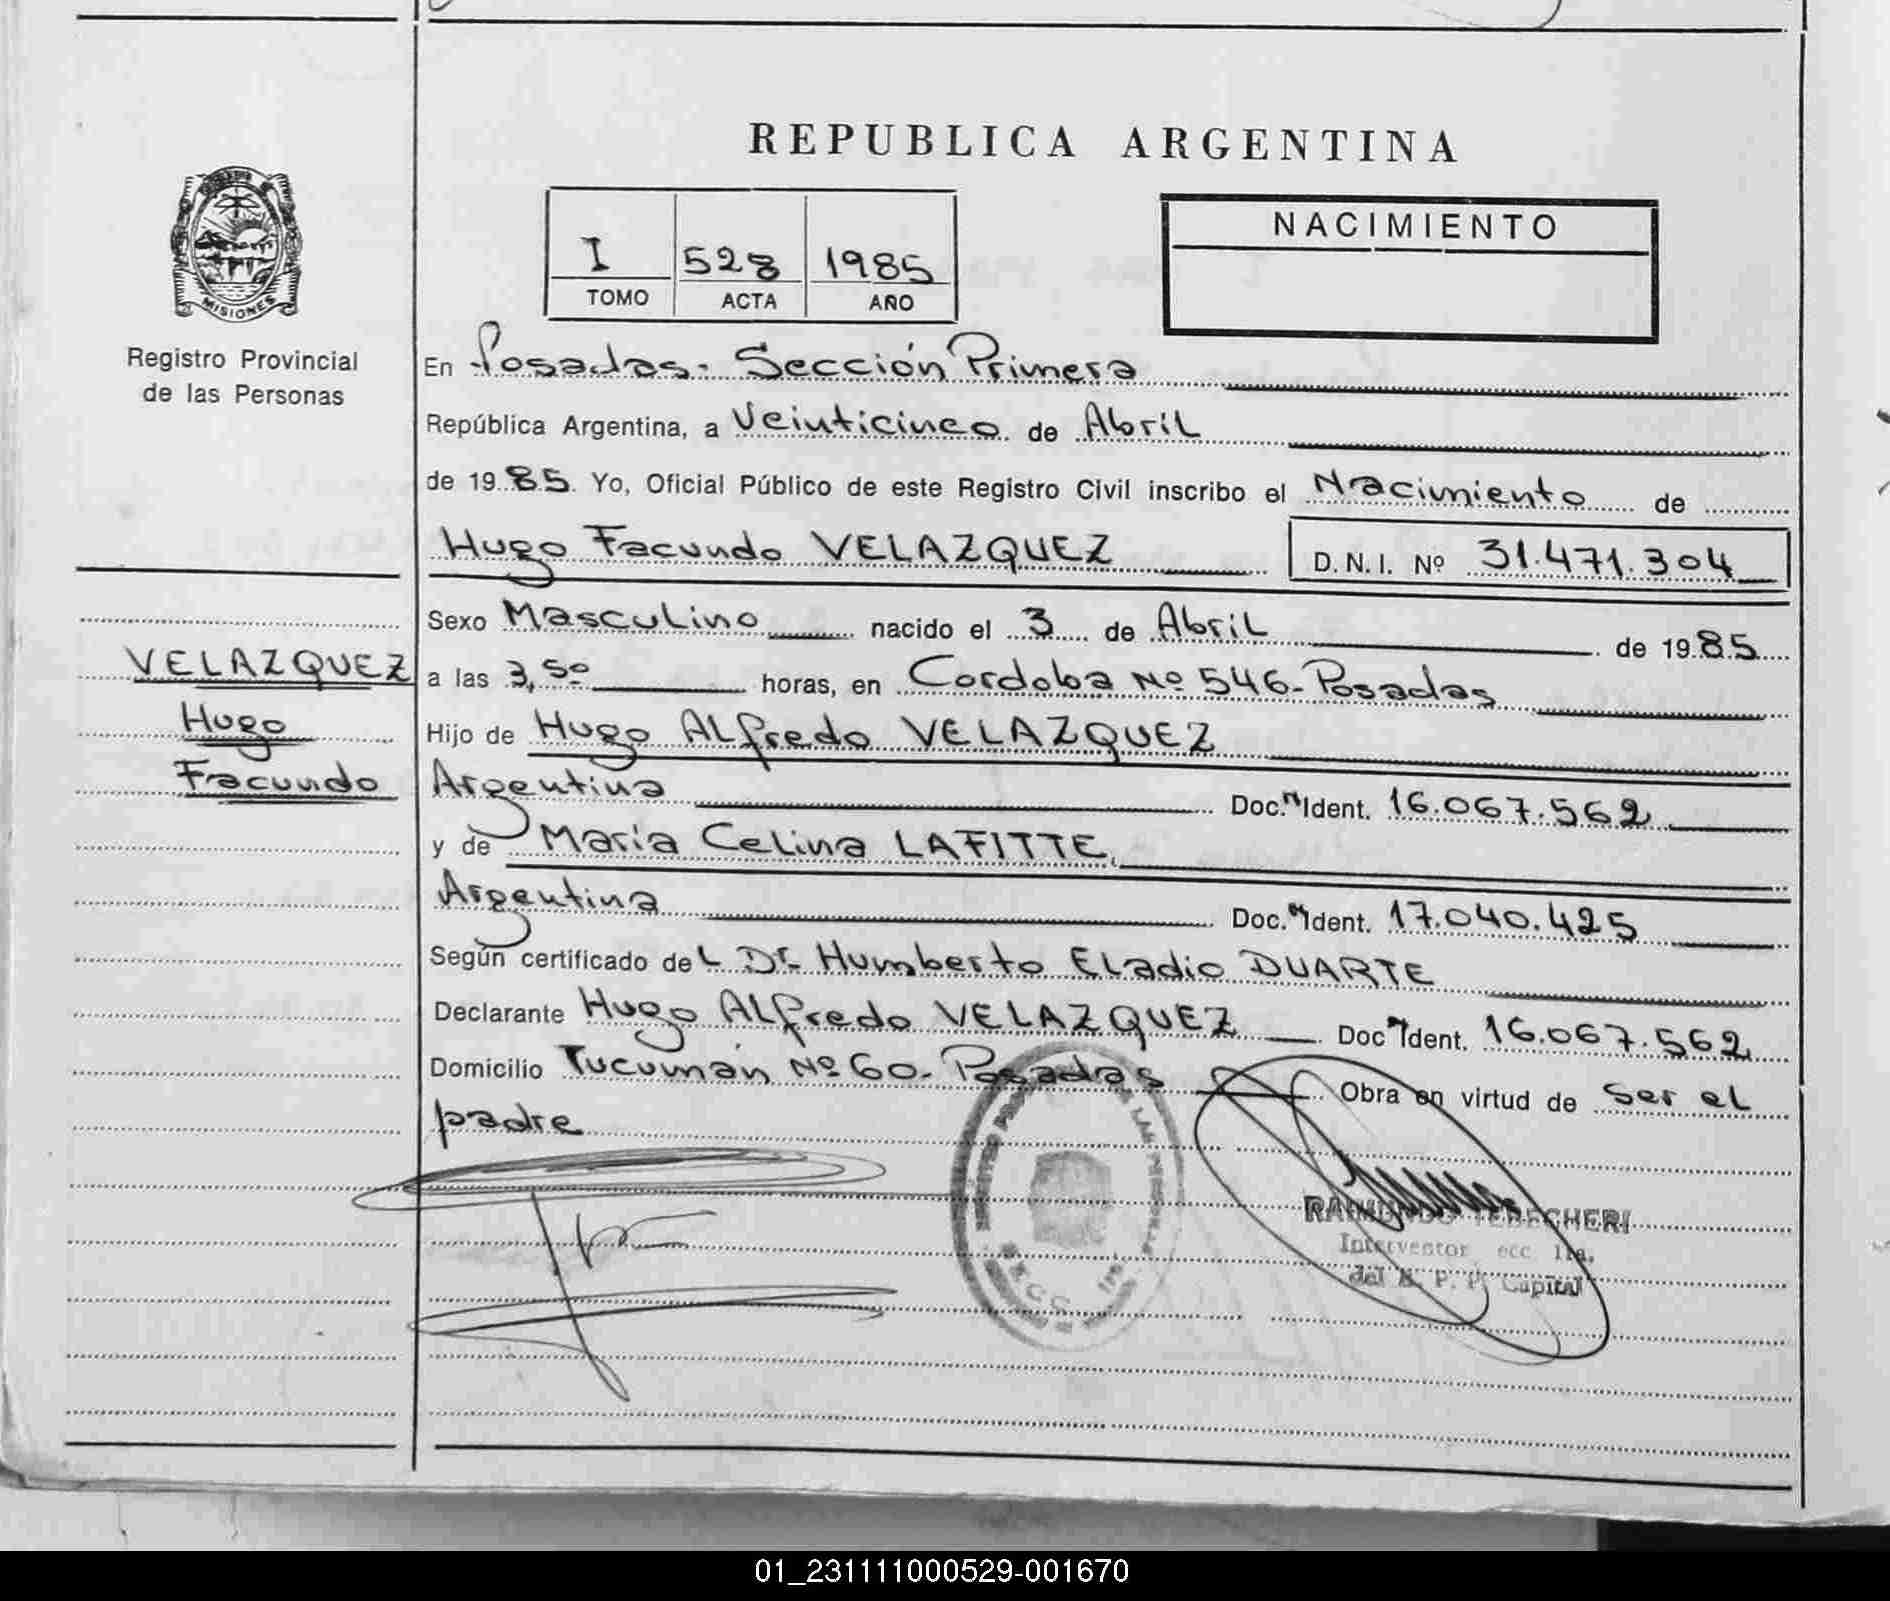 REPUBLICA ARGENTINA
MISIONES
Registro Provincial
de las Personas
I 528 1985
TOMO ACTA AÑO
NACIMIENTO
En Posadas. Sección Primera
República Argentina, a Veinticinco de Abril
de 1985 Yo, Oficial Público de este Registro Civil inscribo el Nacimiento de
Hugo Facundo VELAZQUEZ D.N.I. Nº 31.471.304
Sexo Masculino nacido el 3 de Abril de 1985
VELAZQUEZ
Hugo
Facundo
a las 3,50 horas, en Cordoba Nº 546-Posadas
Hijo de Hugo Alfredo VELAZQUEZ
Argentina Doc. Ident. 16.067.562
y de Maria Celina LAFITTE,
Argentina Doc. Ident. 17.040.425
Según certificado del Dr. Humberto Eladio DUARTE
Declarante Hugo Alfredo VELAZQUEZ Doc. Ident. 16.067.562
Domicilio Tucumán Nº 60- Posadas Obra en virtud de Ser el
padre
Interventor
del R. P. P. Capital
01_231111000529-001670